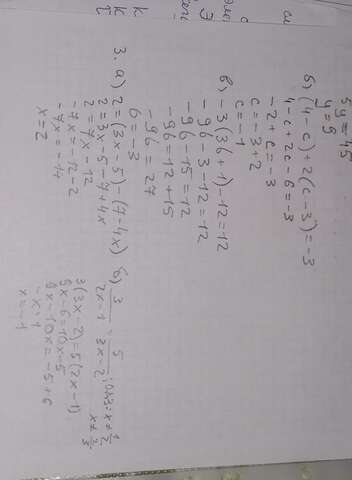 5y = 45
y = 9
б) (4 - c) + 2(c - 3) = -3
4 - c + 2c - 6 = -3
-2 + c = -3
c = -3 + 2
c = -1
в) -3(3б + 1) - 12 = 12
-9б - 3 - 12 = 12
-9б - 15 = 12
-9б = 12 + 15
-9б = 27
б = -3
3. а) 2 = (3x - 5) - (7 - 4x)
2 = 3x - 5 - 7 + 4x
2 = 7x - 12
-7x = -12 - 2
-7x = -14
x = 2
б) 3/(2x - 1) = 5/(3x - 2); ОДЗ: x ≠ 1/2
x ≠ 2/3
3(3x - 2) = 5(2x - 1)
9x - 6 = 10x - 5
9x - 10x = -5 + 6
-x = 1
x = -1